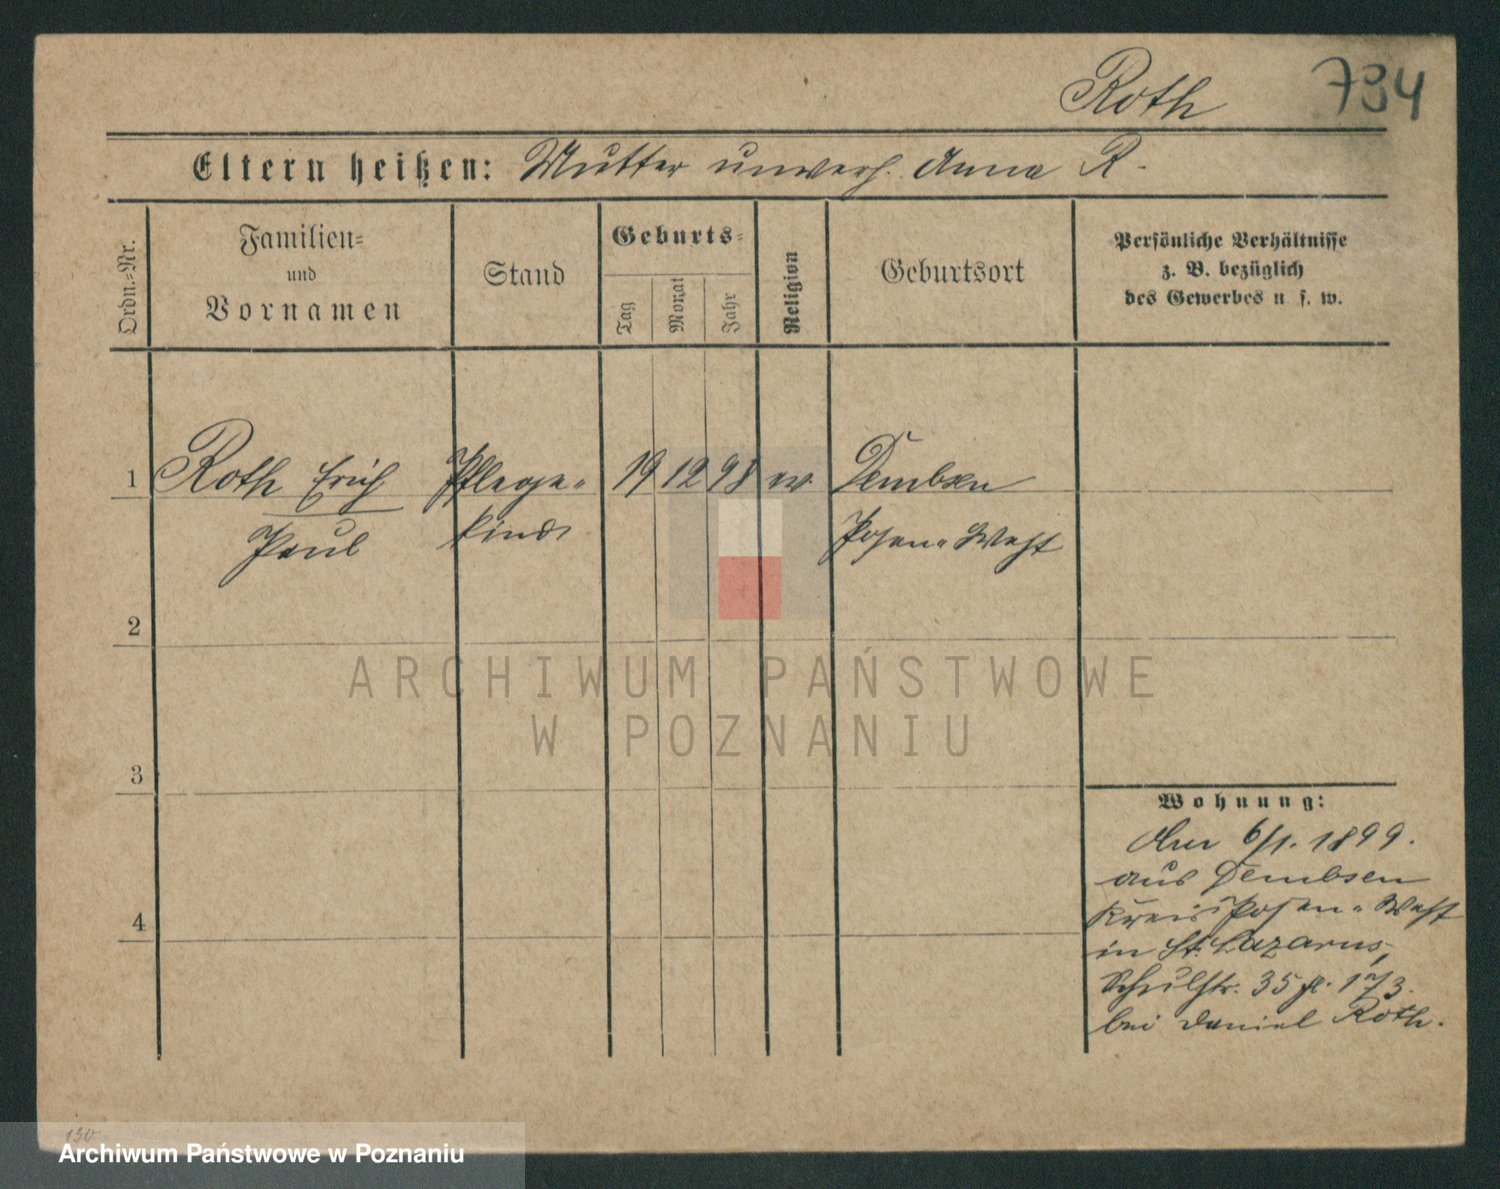 Roth 734
Eltern heißen: Mutter unverh. Anna R.
Ordn.=Nr.
Familien=
und
Vornamen
Stand
Geburts=
Tag
Monat
Jahr
Religion
Geburtsort
Persönliche Verhältnisse
z. B. bezüglich
des Gewerbes u. s. w.
1 Roth Erich Pflege- 19 12 98 ev. Dembsen
Paul kind Posen-West
2
ARCHIWUM PAŃSTWOWE
W POZNANIU
3
Wohnung:
Am 6/1. 1899.
aus Dembsen
4
Kreis Posen-West
in St. Lazarus,
Schulstr. 35
bei Daniel Roth.
130
Archiwum Państwowe w Poznaniu